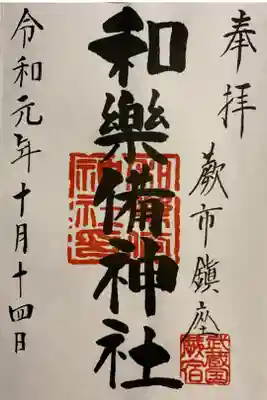 奉拝
蕨市鎮座
和樂備神社
令和元年十月十四日
武蔵国
蕨宿